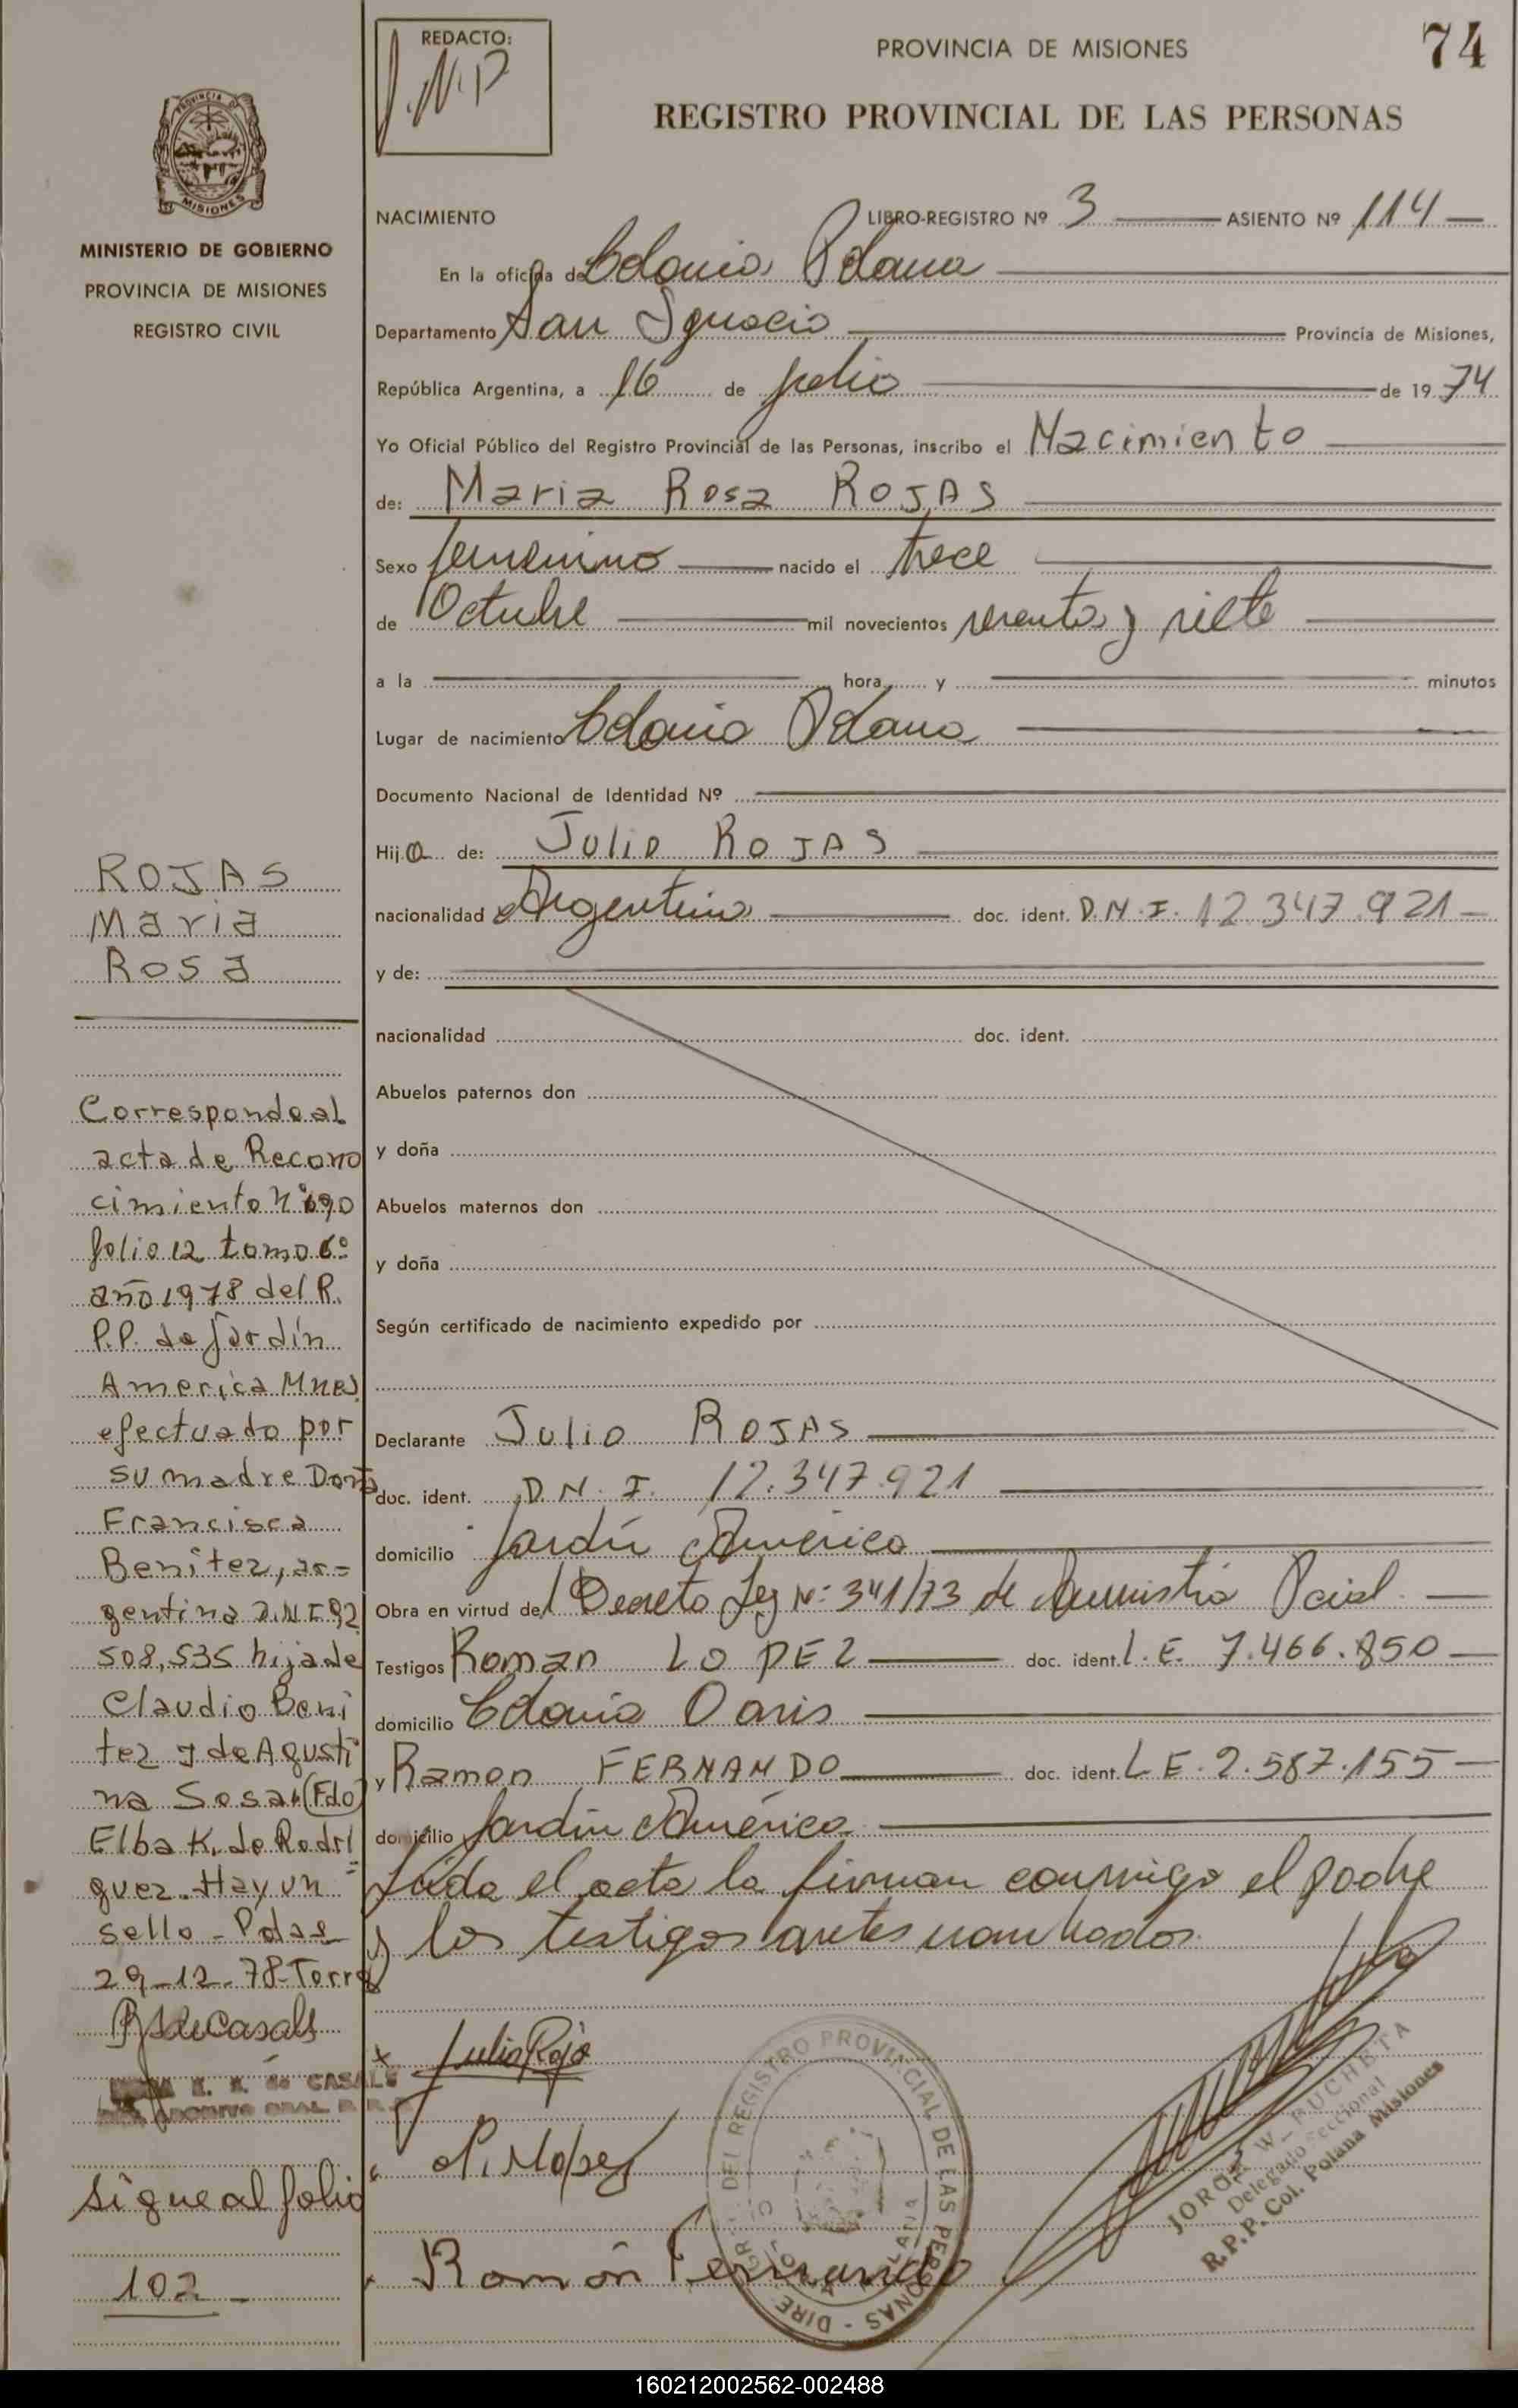 REDACTO:
PROVINCIA DE MISIONES
74
REGISTRO PROVINCIAL DE LAS PERSONAS
PROVINCIA DE
MISIONES
MINISTERIO DE GOBIERNO
PROVINCIA DE MISIONES
REGISTRO CIVIL
NACIMIENTO LIBRO-REGISTRO Nº 3 ASIENTO Nº 114
En la oficina de Colonia Polana
Departamento San Ignacio Provincia de Misiones,
República Argentina, a 16 de julio de 1974
Yo Oficial Público del Registro Provincial de las Personas, inscribo el Nacimiento
de: Maria Rosa ROJAS
Sexo femenino nacido el trece
de Octubre mil novecientos sesenta y siete
a la hora y minutos
Lugar de nacimiento Colonia Polana
Documento Nacional de Identidad Nº
Hija de: Julio ROJAS
nacionalidad Argentino doc. ident. D.N.I. 12.347.921
y de:
nacionalidad doc. ident.
Abuelos paternos don
y doña
Abuelos maternos don
y doña
Según certificado de nacimiento expedido por
Declarante Julio ROJAS
doc. ident. D.N.I. 12.347.921
domicilio Jardín América
Obra en virtud del Decreto Ley Nº 341/73 de
Testigos Roman LOPEZ doc. ident. L.E. 7.466.850
domicilio Colonia Oasis
y Ramon FERNANDO doc. ident. L.E. 2.587.155
domicilio Jardín América
Leída el acta la firman conmigo el padre
y los testigos antes nombrados.
ROJAS
Maria
Rosa
Corresponde al
acta de Recono
cimiento Nº
folio 12 tomo 6º
año 1978 del R.
P.P. de Jardín
America Mnes
efectuado por
su madre Doña
Francisca
Benitez, ar-
gentina D.N.I 92
508.535 hija de
Claudio Beni
tez y de Agusti
na Sosa (Fdo)
Elba K. de Rodri
guez. Hay un
sello - Pdas
29-12-78-Torres
de CASALS
sigue al folio
102
Julio Roja
Ramón Fernando
DIRE. GRAL. DEL REGISTRO PROVINCIAL DE LAS PERSONAS
JORGE W. RUCHETA
Delegado Seccional
R.P.P. Col. Polana Misiones
160212002562-002488